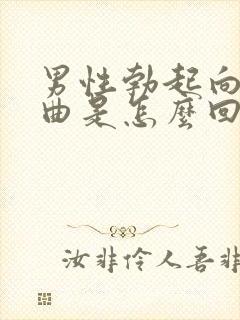 男性勃起向
曲是怎麼回
汝非伶人吾非